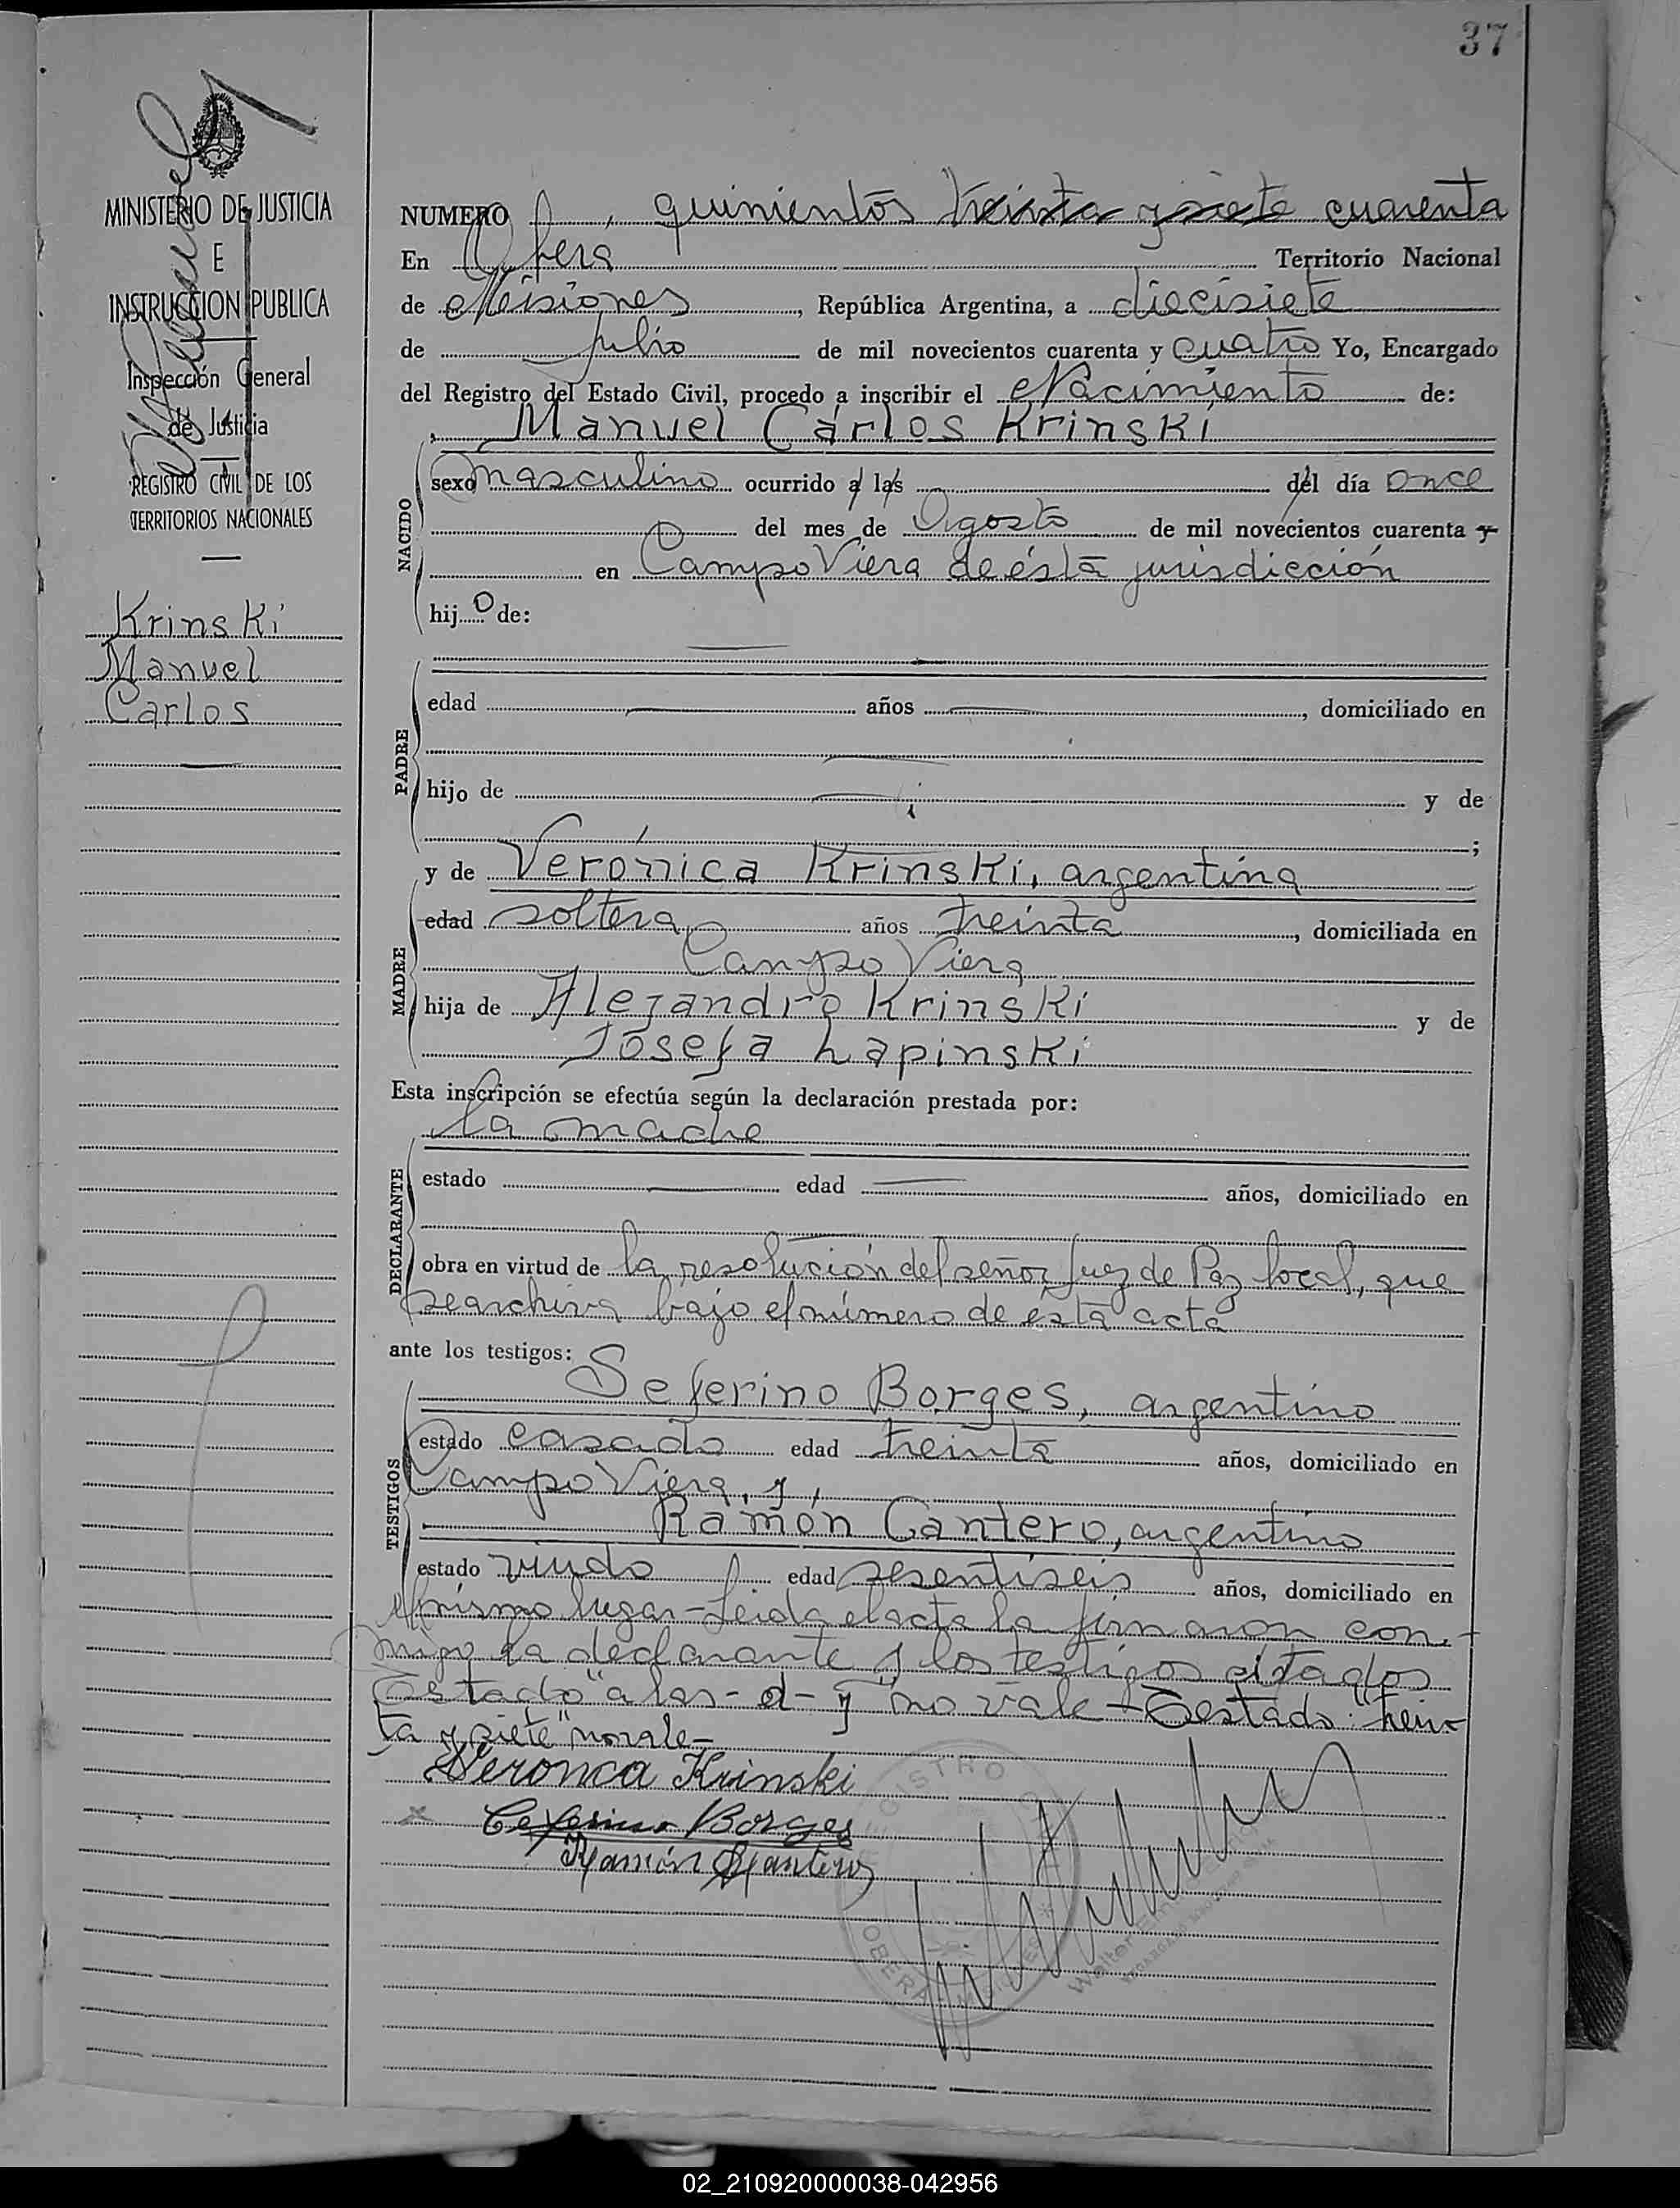 37
MINISTERIO DE JUSTICIA
E
INSTRUCCION PUBLICA
Inspección General
de Justicia
REGISTRO CIVIL DE LOS
TERRITORIOS NACIONALES
Krinski
Manuel
Carlos
NUMERO quinientos treinta y siete cuarenta
En Obera Territorio Nacional
de Misiones, República Argentina, a diecisiete
de Julio de mil novecientos cuarenta y cuatro Yo, Encargado
del Registro del Estado Civil, procedo a inscribir el Nacimiento de:
Manuel Carlos Krinski
NACIDO
sexo masculino ocurrido a las del día once
del mes de Agosto de mil novecientos cuarenta y
en Campo Viera de ésta jurisdicción
hijo de:
PADRE
edad años , domiciliado en
hijo de y de
;
y de Verónica Krinski, argentina
MADRE
edad soltera años treinta , domiciliada en
Campo Viera
hija de Alejandro Krinski y de
Josefa Lapinski
Esta inscripción se efectúa según la declaración prestada por:
la madre
DECLARANTE
estado edad años, domiciliado en
obra en virtud de la resolución del señor Juez de Paz local, que
se archiva bajo el número de ésta acta
ante los testigos:
TESTIGOS
Seferino Borges, argentino
estado casado edad treinta años, domiciliado en
Campo Viera, y,
Ramón Cantero, argentino
estado viudo edad sesentiseis años, domiciliado en
el mismo lugar - Leida el acta la firmaron con-
migo la declarante y los testigos citados
Testado "a las - d - y" no vale - Testado: "trein
ta y siete" no vale -
Veronca Krinski
Ceferino Borges
Ramón Cantero
REGISTRO
OBERA MISIONES
02_210920000038-042956